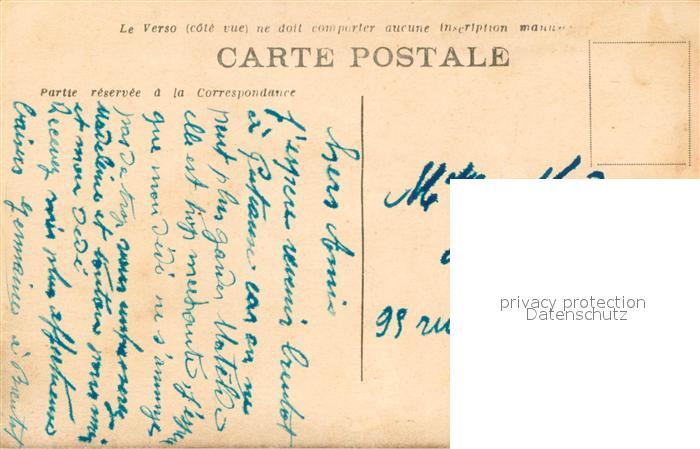 Le Verso (côté vue) ne doit comporter aucune inscription
CARTE POSTALE
Partie réservée à la Correspondance
Chers Amis
J'espère revenir bientot
à car on ne
peut plus garder Mathilde
elle est trop mechante, j'esp
que mon dédé ne s'ennuye
pas de trop vous embrasserez
Madeleine et tonton pour moi
et mon dédé
Recevez mes plus affectueux
baisers Germaine à Bientot
M
99 ru
privacy protection
Datenschutz